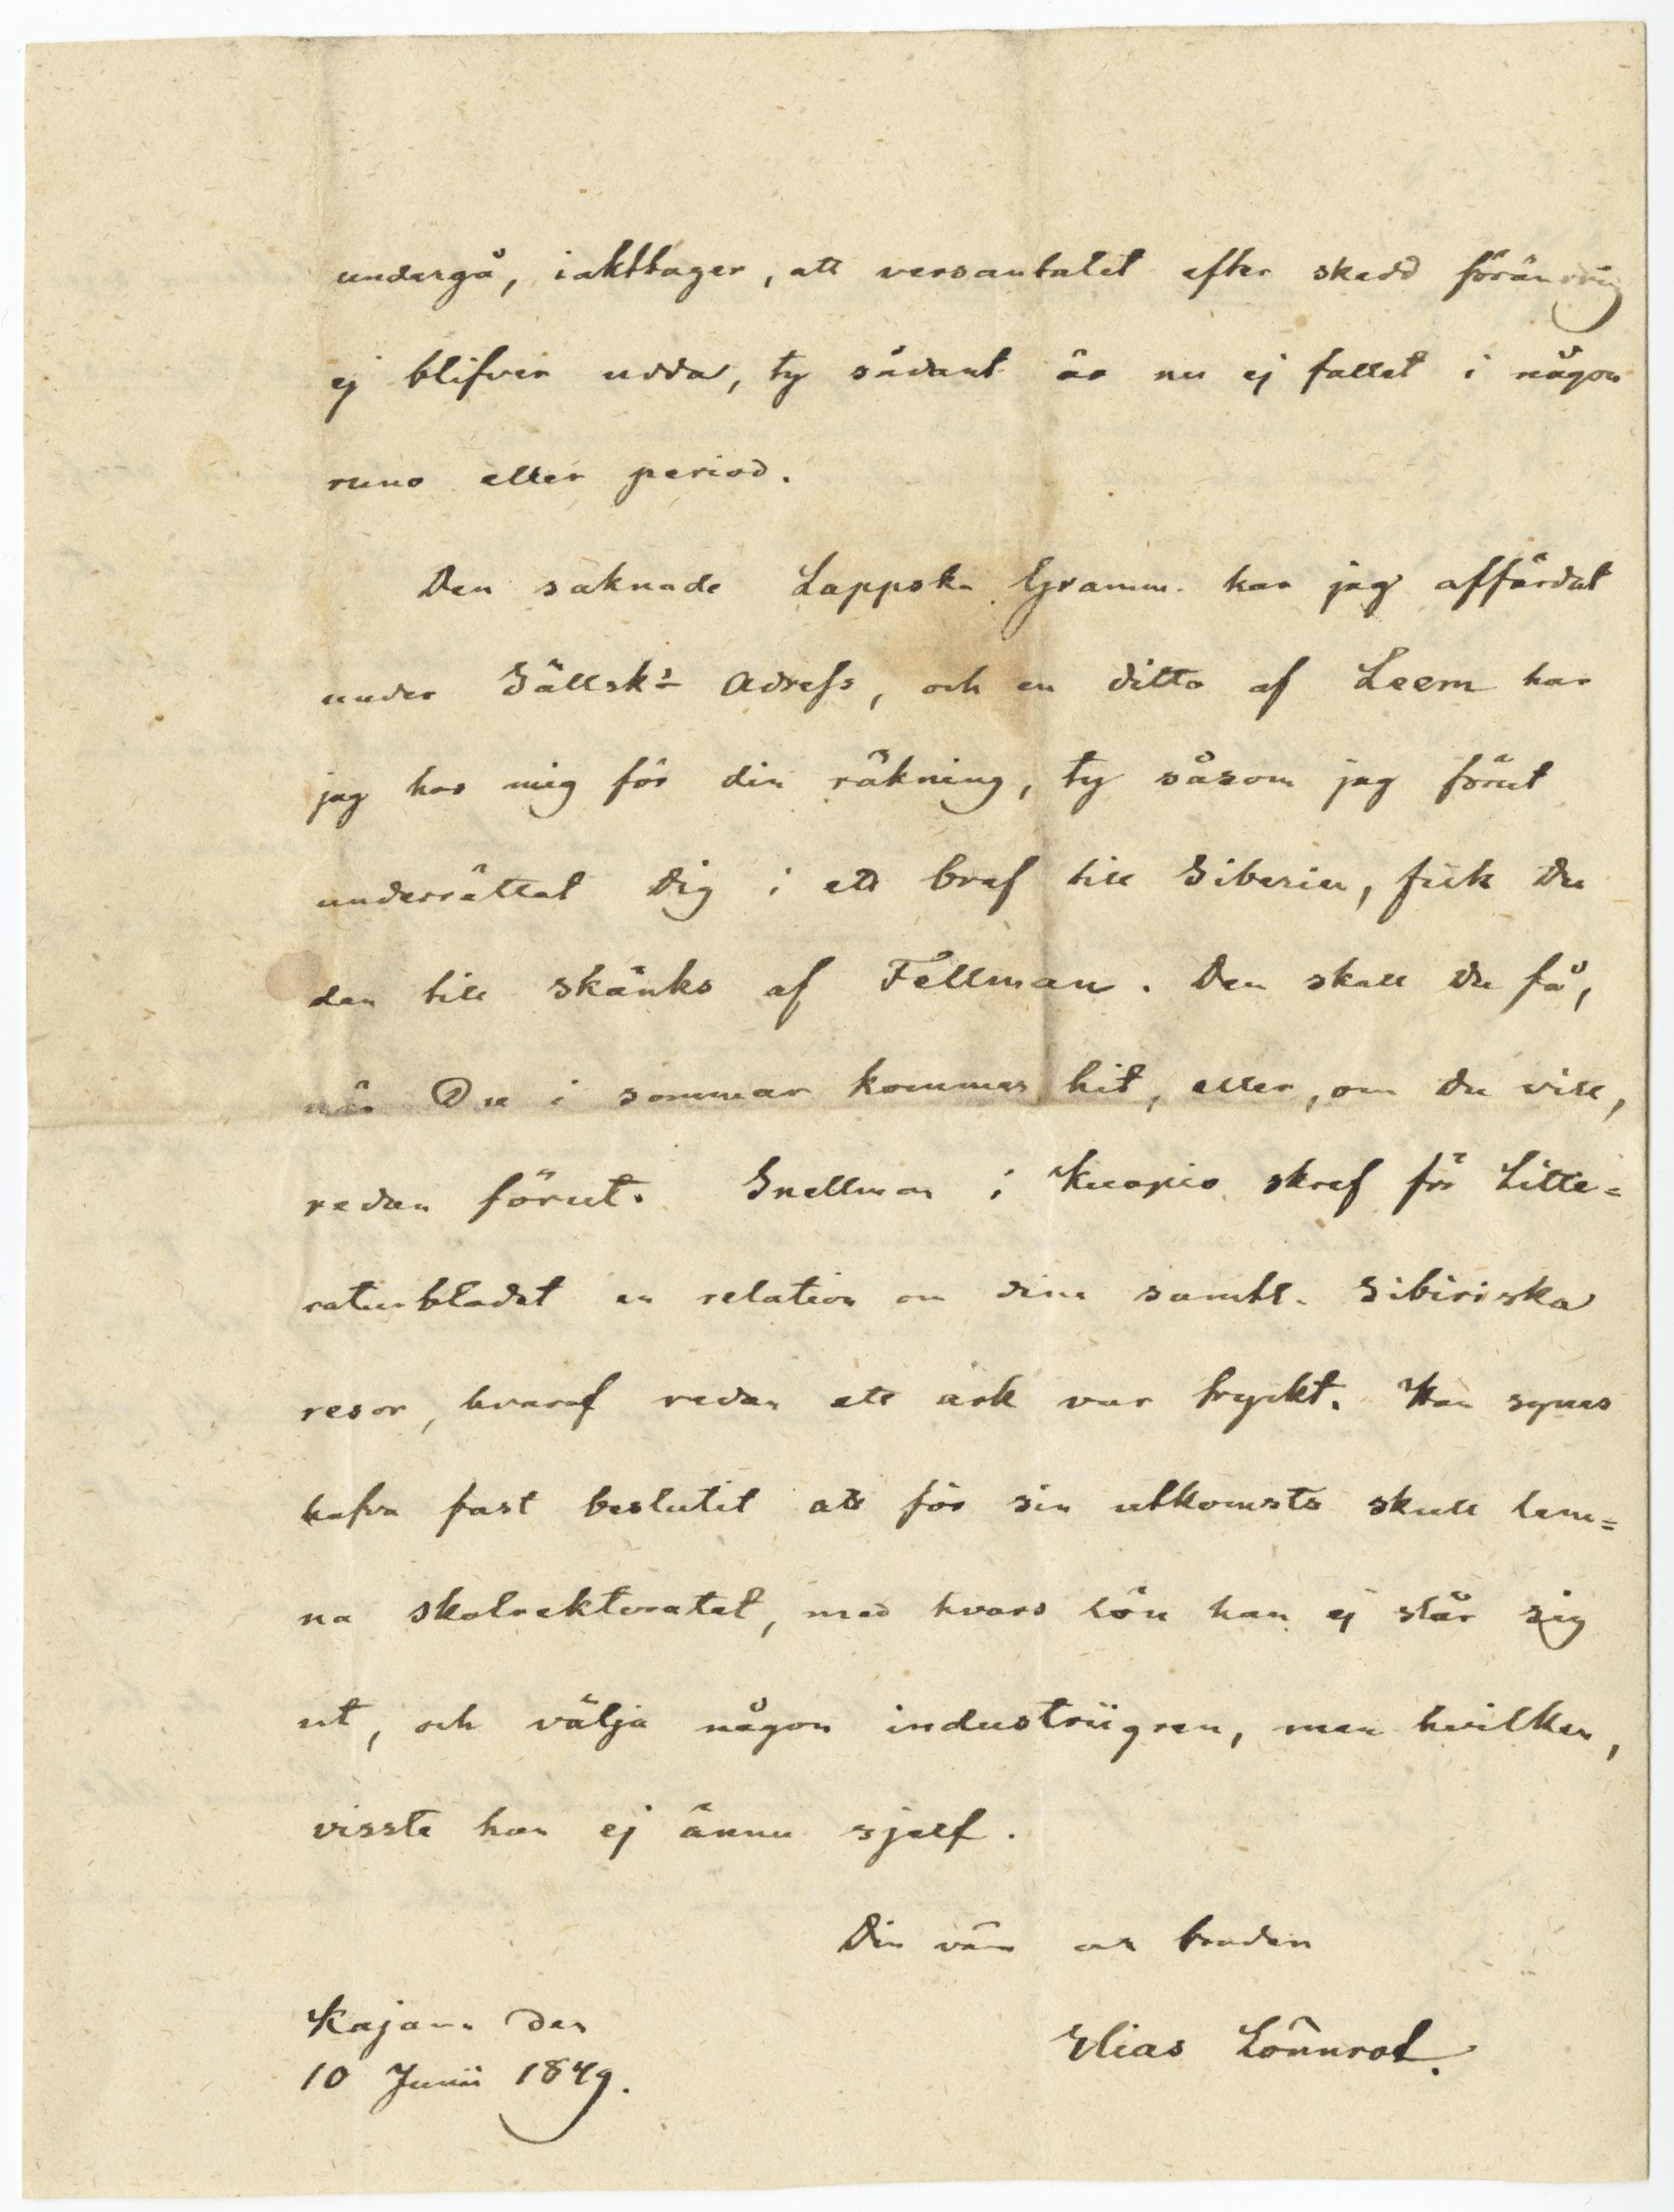 undergå, iakttager, att versantalet efter skedd förändrig
ej blifver udda, ty sådant är nu ej fallet i någon
runo eller period.
Den saknade Lappska Gramm. har jag affärdat
under Sällsk:s Adress, och en ditto af Leem har
jag hos mig för din räkning, ty såsom jag förut
underrättat Dig i ett bref till Siberien, fick Du
den till skänks af Fellman. Den skall Du få,
när Du i sommar kommer hit, eller, om Du vill,
redan förut. Snellman i Kuopio skref för Litte=
raturbladet en relation om dina samtl. Sibiriska
resor, hvaraf redan ett ark var tryckt. Han synes
hafva fast beslutit att för sin utkomsts skull lem=
na skolrektoratet, med hvars lön han ej slår sig
ut, och välja någon industriigren, men hvilken,
visste han ej ännu sjelf.
Din vän och broder
Kajana den
Elias Lönnrot.
10 Junii 1849.